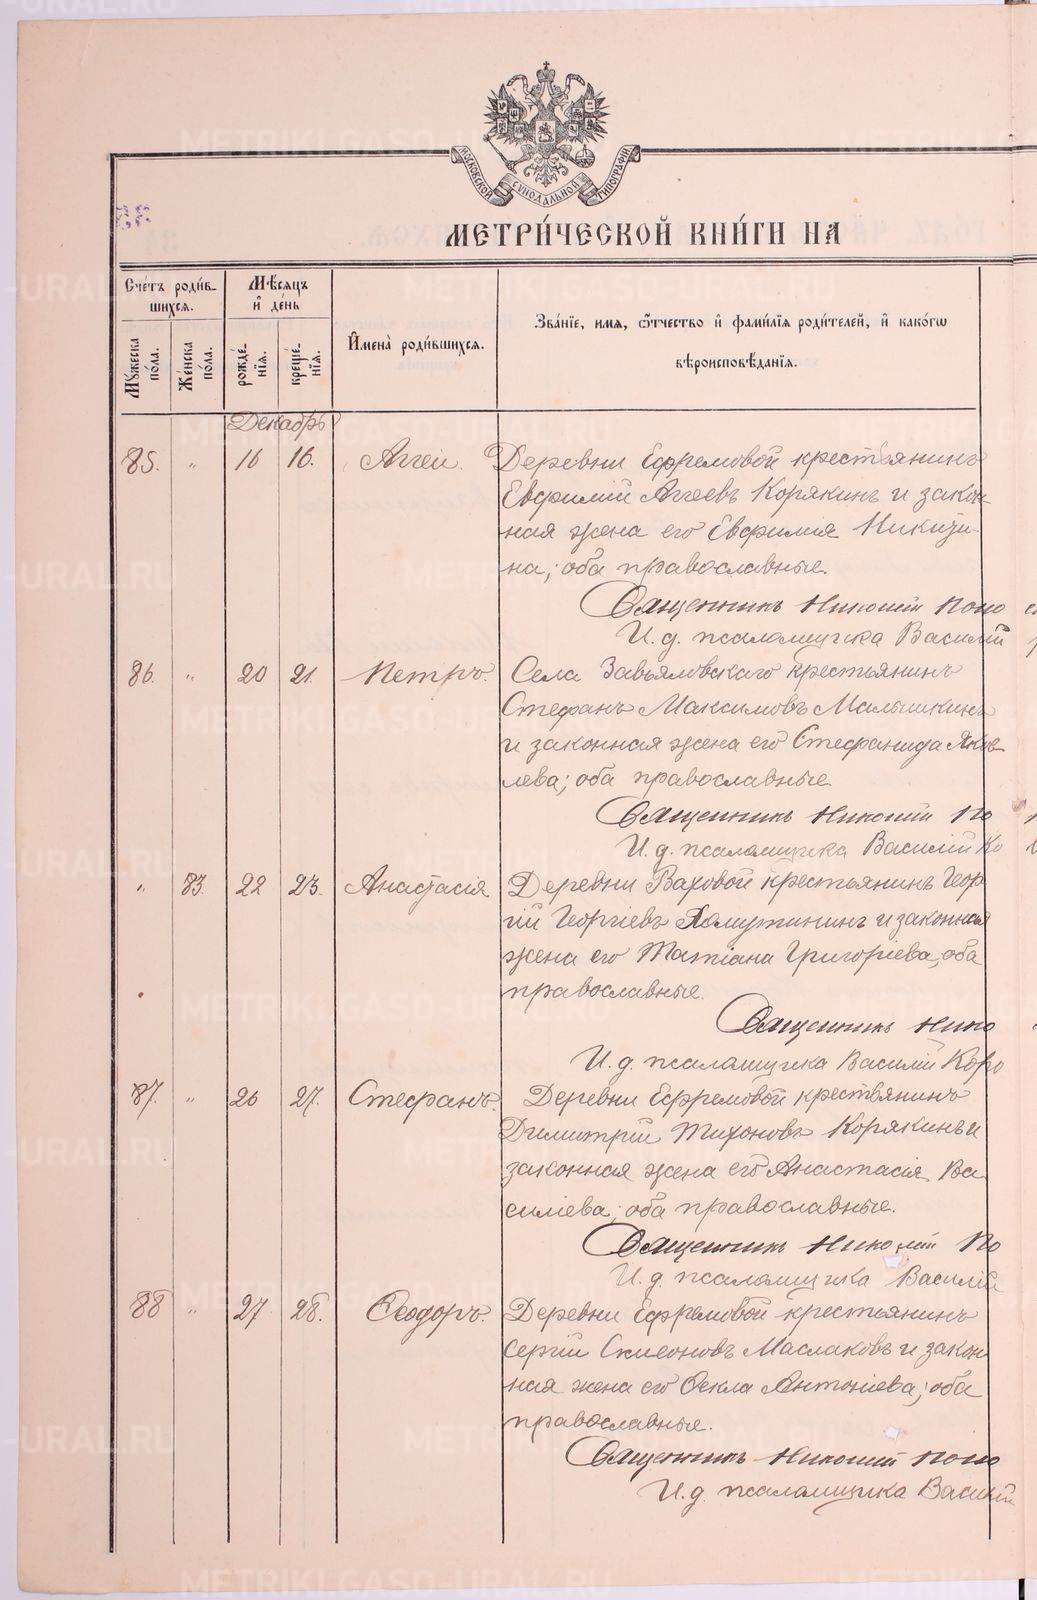 МОСКОВСКОЙ СѴНОДАЛЬНОЙ ТИПОГРАФІИ
МЕТРИ́ЧЕСКОЙ КНИ́ГИ НА
Сче́тъ роди́в-
шихся.
Мѣ́сяцъ
и҆ де́нь
И҆мена̀ роди́вшихся.
Зва́нїе, имя, ѻ҆́тчество и҆ фами́лїя роди́телей, и҆ како́гѡ
вѣроисповѣ́данїя.
Мꙋ́жеска
по́ла.
Же́нска
по́ла.
рожде́-
нїя.
креще́-
нїя.
Декабрь
85. " 16 16. Аггей. Деревни Ефремовой крестьянинъ
Евфимій Аггеевъ Корякинъ и закон-
ная жена его Евфимія Никити-
на; оба православные.
Священникъ Николай Попо
И. д. псаломщика Василій
86. " 20 21. Петръ. Села Завьяловскаго крестьянинъ
Стефанъ Максимовъ Малышкинъ
и законная жена его Стефанида Яков
лева; оба православные.
Священникъ Николай По
И. д. псаломщика Василій Ко
" 83. 22 23. Анастасія Деревни Ваховой крестьянинъ Геор
гій Георгіевъ и законная
жена его Татіана Григоріева, оба
православные.
Священникъ Нико
И. д. псаломщика Василій Коро
87. " 26 27. Стефанъ. Деревни Ефремовой крестьянинъ
Димитрій Тихоновъ Корякинъ и
законная жена его Анастасія Ва
силіева; оба православные.
Священникъ Николай По
И. д. псаломщика Василій
88 " 27 28. Ѳеодоръ. Деревни Ефремовой крестьянинъ
Сергій Симеоновъ Маслаковъ и закон
ная жена его Ѳекла Антоніева; оба
православные.
Священникъ Николай Попо
И. д. псаломщика Василій
METRIKI.GASO-URAL.RU